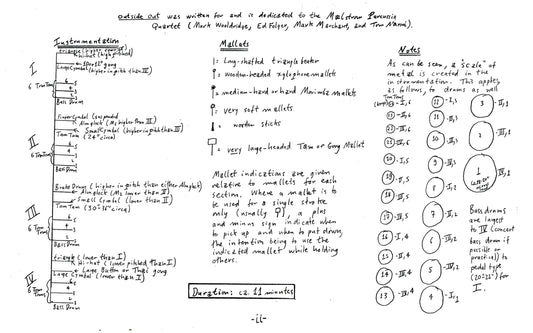 outside out was written for and is dedicated to the Maelström Percussion
Quartet (Mark Wooldridge, Ed Folger, Mark Marchand, and Tom Nanni).
Instrumentation
I
6 Tom Toms
triangle (higher
hi-hat (high pitched)
Large Cymbal (higher in pitch than III)
6
5
Bass Drum
II
6 Tom Toms
Finger Cymbal (suspended
Almglock (M2 higher than III)
Small Cymbal (higher in pitch than III)
Tam Tam (24" circa)
6
5
Bass Drum
III
6 Tom Toms
Brake Drums (higher in pitch than either Almglock)
Almglock (M2 lower than II)
Small Cymbal (lower than II)
Tam Tam (30"-36" circa)
6
5
Bass Drum
IV
6 Tom Toms
triangle (lower than I)
hi-hat (lower pitched than I)
Large Button or Thai gong
Large Cymbal (lower than I)
6
5
2
Bass Drum
Mallets
= Long-shafted triangle beater
= wooden-headed xylophone mallets
= medium-hard or hard Marimba mallets
= very soft mallets
= wooden sticks
= very large-headed Tam or Gong Mallet
Mallet indications are given
relative to mallets for each
section. Where a mallet is to
be used for a single stroke
only (usually ) a plus
and minus sign indicate when
to pick up and when to put down,
the intention being to use the
indicated mallet while holding
others.
Duration: ca. 11 minutes
Notes
As can be seen, a "scale" of
metal is created in the
instrumentation. This applies,
as follows, to drums as well
Tom Toms
I,6
II,6
III,6
IV,6
I,5
II,5
III,5
IV,5
I,4
II,4
III,4
13 -IV,4
12 -I,3
11 -II,3
10 -III,3
9 -IV,3
8 -I,2
7 -II,2
6 -III,2
5 -IV,2
4 -I,1
3 -II,1
2 -III,1
1
IV,1
Bass drums
are largest
to IV (concert
bass drum if
possible or
practical) to
pedal type
(20"-22") for
I.
-ii-